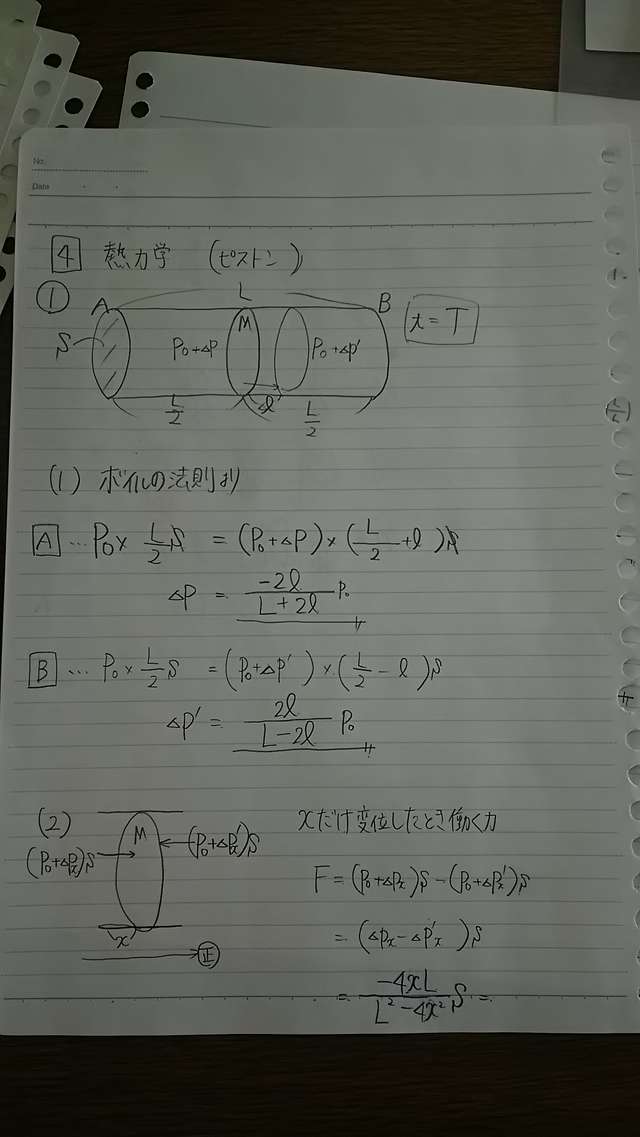 No.
Date
4 熱力学 (ピストン)
① A L B
t = T
S P₀+ΔP M P₀+Δp'
L/2 l L/2
(1) ボイルの法則より
A … P₀ × L/2 S = (P₀+ΔP) × (L/2 + l) S
ΔP = -2l/(L+2l) P₀
B … P₀ × L/2 S = (P₀+ΔP') × (L/2 - l) S
ΔP' = 2l/(L-2l) P₀
(2) M
(P₀+ΔPx)S (P₀+ΔP'x)S
x
正
xだけ変位したとき働く力
F = (P₀+ΔPx)S - (P₀+ΔPx')S
= (ΔPx - ΔP'x)S
= -4xL/(L²-4x²) S =